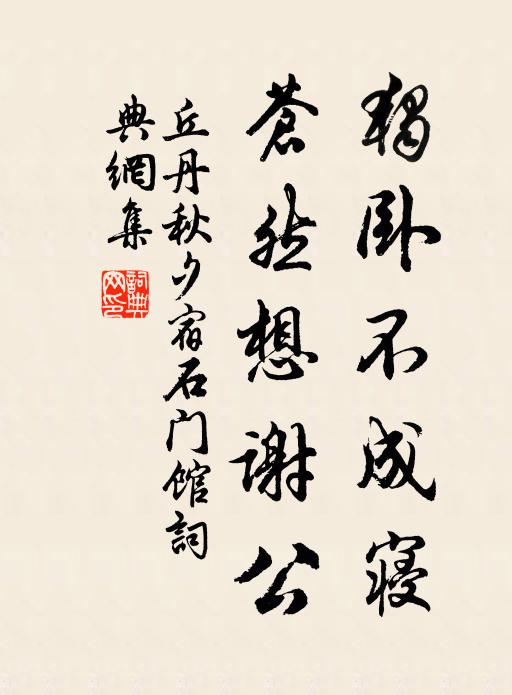 獨卧不成寢
蒼然想謝公
丘丹秋夕宿石门馆詞
典網集
詞典
网印